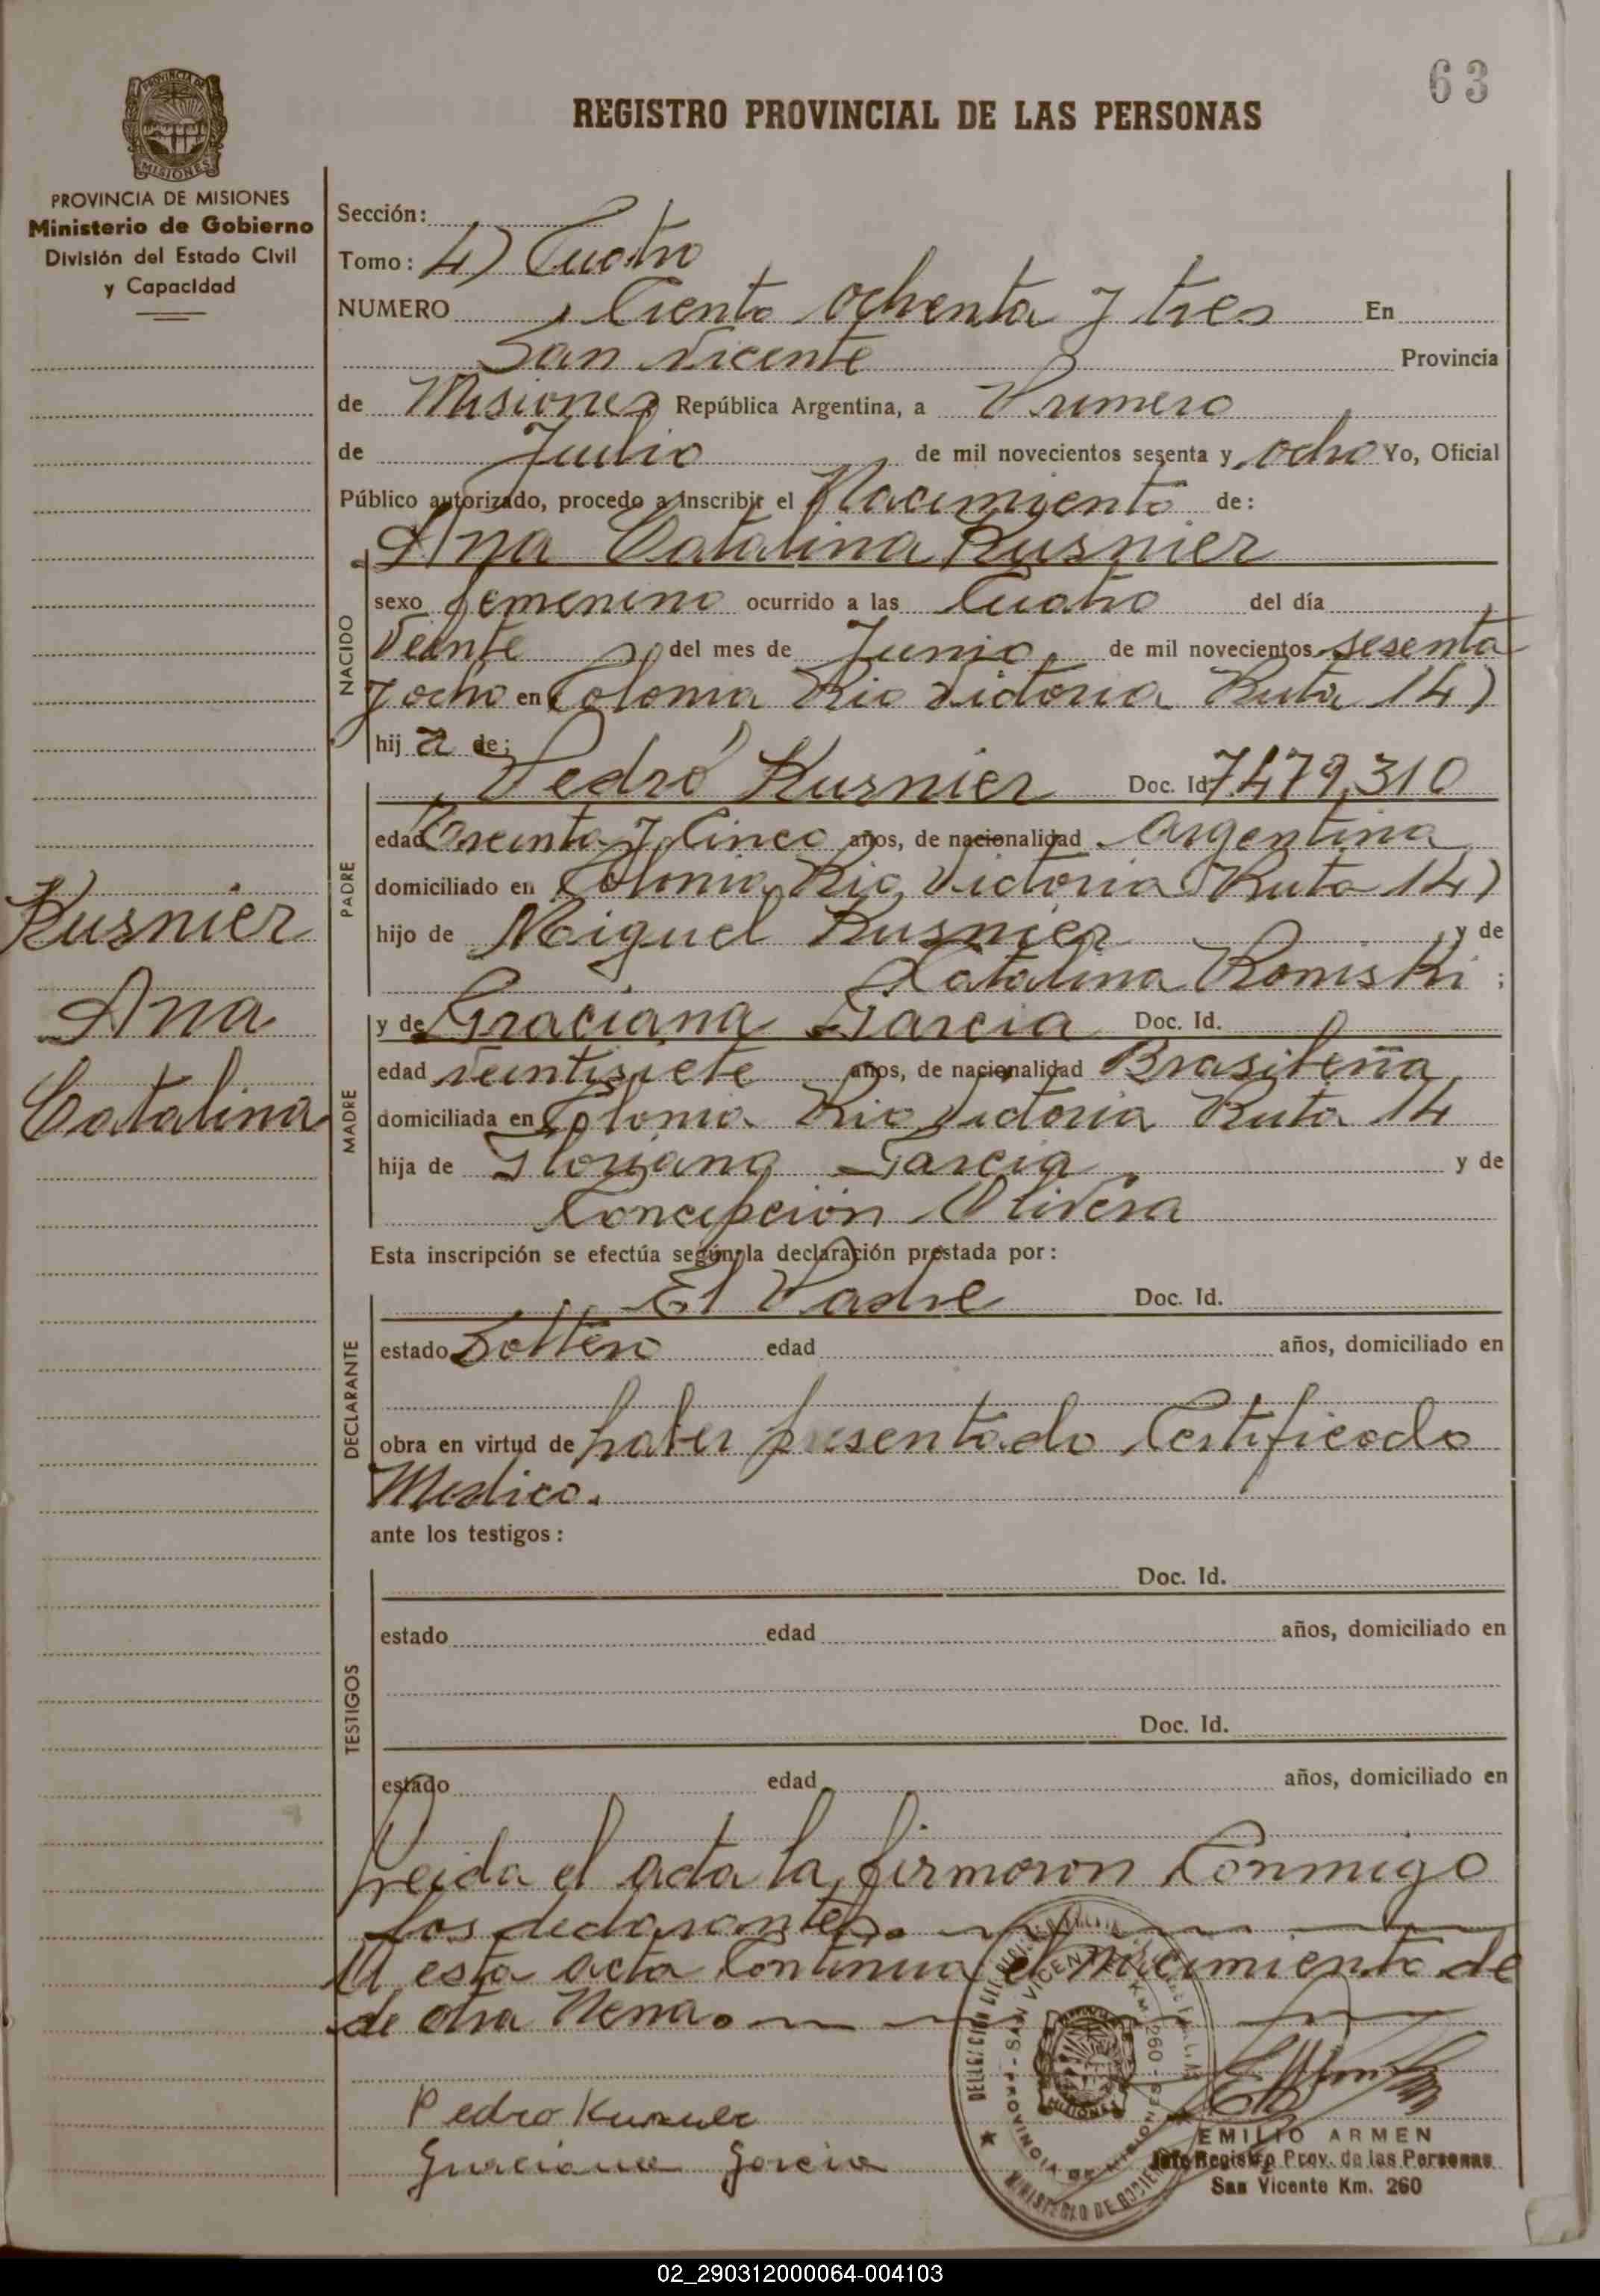 63
REGISTRO PROVINCIAL DE LAS PERSONAS
PROVINCIA DE MISIONES
PROVINCIA DE MISIONES
Ministerio de Gobierno
División del Estado Civil
y Capacidad
Kusnier
Ana
Catalina
Sección:
Tomo: 4) Cuatro
NUMERO Ciento ochenta y tres En
San Vicente Provincia
de Misiones República Argentina, a Primero
de Julio de mil novecientos sesenta y ocho Yo, Oficial
Público autorizado, procedo a inscribir el Nacimiento de:
Ana Catalina Kusnier
NACIDO
sexo femenino ocurrido a las Cuatro del día
Veinte del mes de Junio de mil novecientos sesenta
y ocho en Colonia Rio Victoria Ruta 14)
hij a de:
PADRE
Pedro Kusnier Doc. Id. 7.479.310
edad Treinta y Cinco años, de nacionalidad Argentina
domiciliado en Colonia Rio Victoria Ruta 14)
hijo de Miguel Kusnier y de
Catalina Romiski ;
MADRE
y de Graciana Garcia Doc. Id.
edad veintisiete años, de nacionalidad Brasileña
domiciliada en Colonia Rio Victoria Ruta 14
hija de Floriana Garcia y de
Concepción Olivera
Esta inscripción se efectúa según la declaración prestada por:
DECLARANTE
El Padre Doc. Id.
estado Soltero edad años, domiciliado en
obra en virtud de haber presentado Certificado
Medico.
ante los testigos:
TESTIGOS
Doc. Id.
estado edad años, domiciliado en
Doc. Id.
estado edad años, domiciliado en
Leida el acta la firmaron Conmigo
los declarantes.
A esta acta Continua el nacimiento de
de otra Nena.
Pedro Kusnier
Graciana Garcia
SAN VICENTE KM 260 - PROVINCIA DE MISIONES
MISIONES
MINISTERIO DE GOBIERNO
EMILIO ARMEN
Jefe Registro Prov. de las Personas
San Vicente Km. 260
02_290312000064-004103